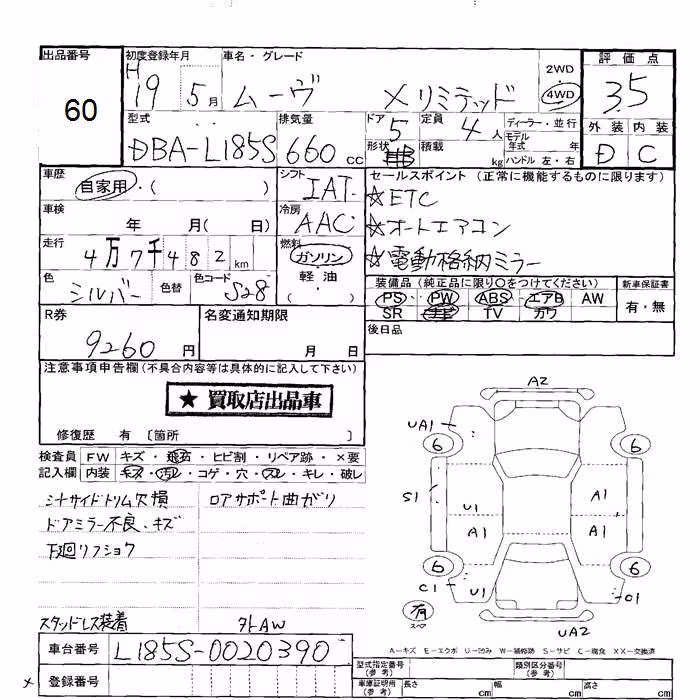 出品番号 初度登録年月 車名・グレード 評価点
60 H19 5月 ムーヴ Xリミテッド 2WD 4WD 3.5
型式 排気量 ドア 定員 ディーラー・並行 外装 内装
DBA-L185S 660cc 5 4人 モデル年式 年 D C
形状 積載 kg ハンドル 左・右
車歴 シフト セールスポイント (正常に機能するものに限ります)
自家用・( ) IAT ☆ETC
車検 冷房
年 月( 日) AAC ☆オートエアコン
走行 燃料
4万7千482km ガソリン ☆電動格納ミラー
色 色替 色コード 軽油
シルバー S28 ( )
装備品 (純正品に限り○をつけてください) 新車保証書
PS PW ABS エアB AW 有・無
SR TV カワ
R券 名変通知期限 後日品
9260円 月 日
注意事項申告欄 (不具合内容等は具体的に記入して下さい)
★ 買取店出品車
修復歴 有 〔箇所 〕
検査員 FW キズ・飛石・ヒビ割・リペア跡・×要
記入欄 内装 キズ・汚レ・コゲ・穴・スレ・キレ・破レ
シナサイドトリム欠損 ロアサポート曲がり
ドアミラー不良、キズ
下廻リフショク
スタッドレス装着 外AW
A2
UA1
6 6
S1 A1
U1
A1 A1
6 6
C1 U1 C1
有
スペア
UA2
A-キズ E-エクボ U-凹み W-補修跡 S-サビ C-腐食 XX-交換済
車台番号 L185S-0020390
登録番号
型式指定番号 (参考) 類別区分番号 (参考)
車庫証明用 (参考) 長さ cm 幅 cm 高さ cm